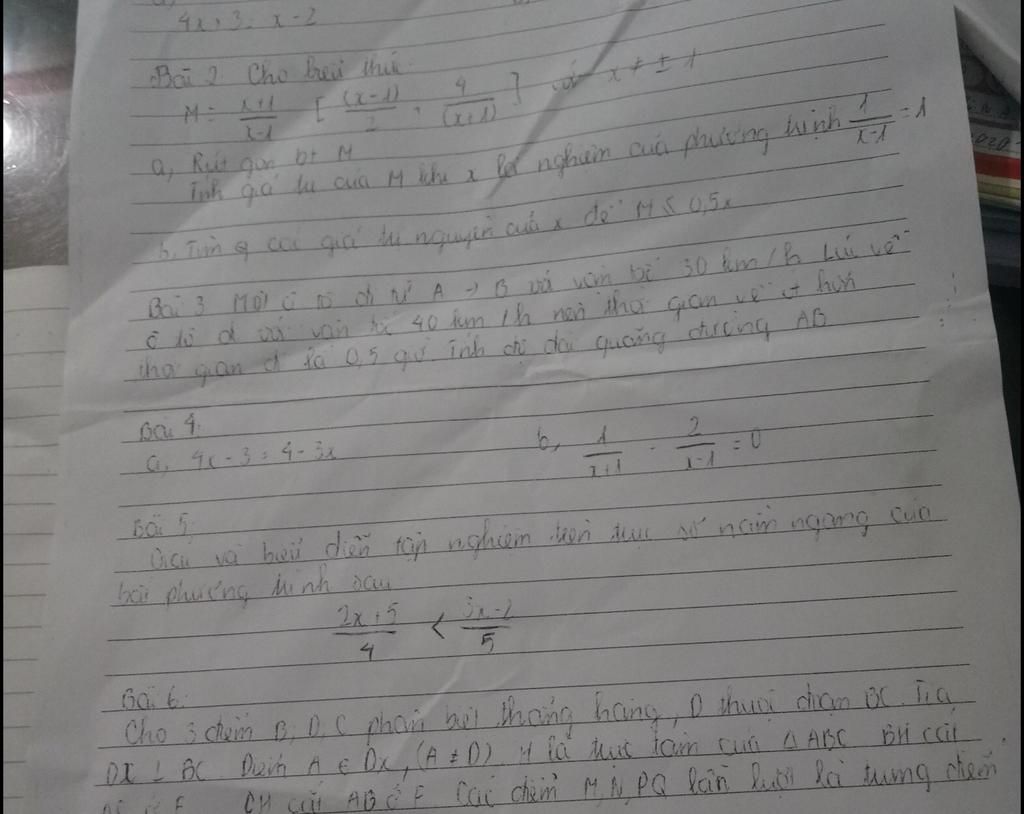 4x+3 = x-2
Bài 2 Cho biểu thức
M = \frac{x+1}{x-1} [ \frac{(x-1)}{2} \cdot \frac{4}{(x+1)} ] với x ≠ ± 1
a, Rút gọn bt M
Tính giá trị của M khi x là nghiệm của phương trình \frac{1}{x-1} = 1
b, Tìm các giá trị nguyên của x để M ≤ 0,5x
Bài 3 Một ô tô đi từ A → B với vận tốc 30 km/h Lúc về
ô tô đi với vận tốc 40 km/h nên thời gian về ít hơn
thời gian đi là 0,5 giờ Tính độ dài quãng đường AB
Bài 4:
a, 4x-3 = 4-3x b, \frac{1}{x+1} - \frac{2}{x-1} = 0
Bài 5:
Giải và biểu diễn tập nghiệm trên trục số nằm ngang của
bất phương trình sau
\frac{2x+5}{4} < \frac{3x-2}{5}
Bài 6:
Cho 3 điểm B, D, C phân biệt thẳng hàng, D thuộc đoạn BC. Tia
DX ⊥ BC Điểm A ∈ Dx, (A ≠ D) H là trực tâm của △ABC BH cắt
CH cắt AB ở F Các điểm M, N, P, Q lần lượt là trung điểm